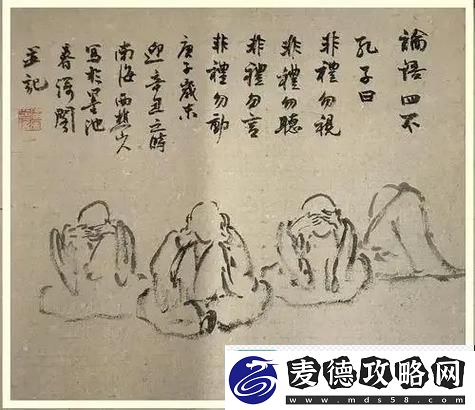 論語四不
孔子曰
非禮勿視
非禮勿聽
非禮勿言
非禮勿動
庚子歲末
迎辛丑之時
南海西樵山人
寫於墨池
並記
麦德攻略网
www.mds58.com